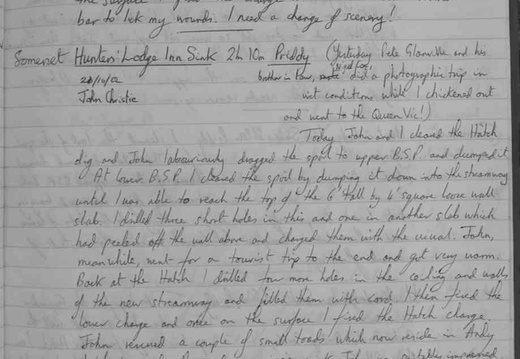 bar to lick my wounds. I need a change of scenery!
Somerset Hunters' Lodge Inn Sink 2h 10m Priddy (Yesterday Pete Glanville and his
brother in law, did a photographic trip in
21/10/02
John Christie
wet conditions while I chickened out
and went to the Queen Vic!)
Today John and I cleared the Hatch
dig and John labouriously dragged the spoil to upper B.S.P. and dumped it.
At lower B.S.P. I cleared the spoil by dumping it down into the streamway
until I was able to reach the top of the 6' tall by 4' square loose wall
slab. I drilled three short holes in this and one in another slab which
had peeled off the wall above and charged them with the usual. John,
meanwhile, went for a tourist trip to the end and got very warm.
Back at the Hatch I drilled four more holes in the ceiling and walls
of the new streamway and filled them with cord. I then fired the
lower charge and once on the surface I fired the Hatch charge.
John rescued a couple of small toads which now reside in Andy